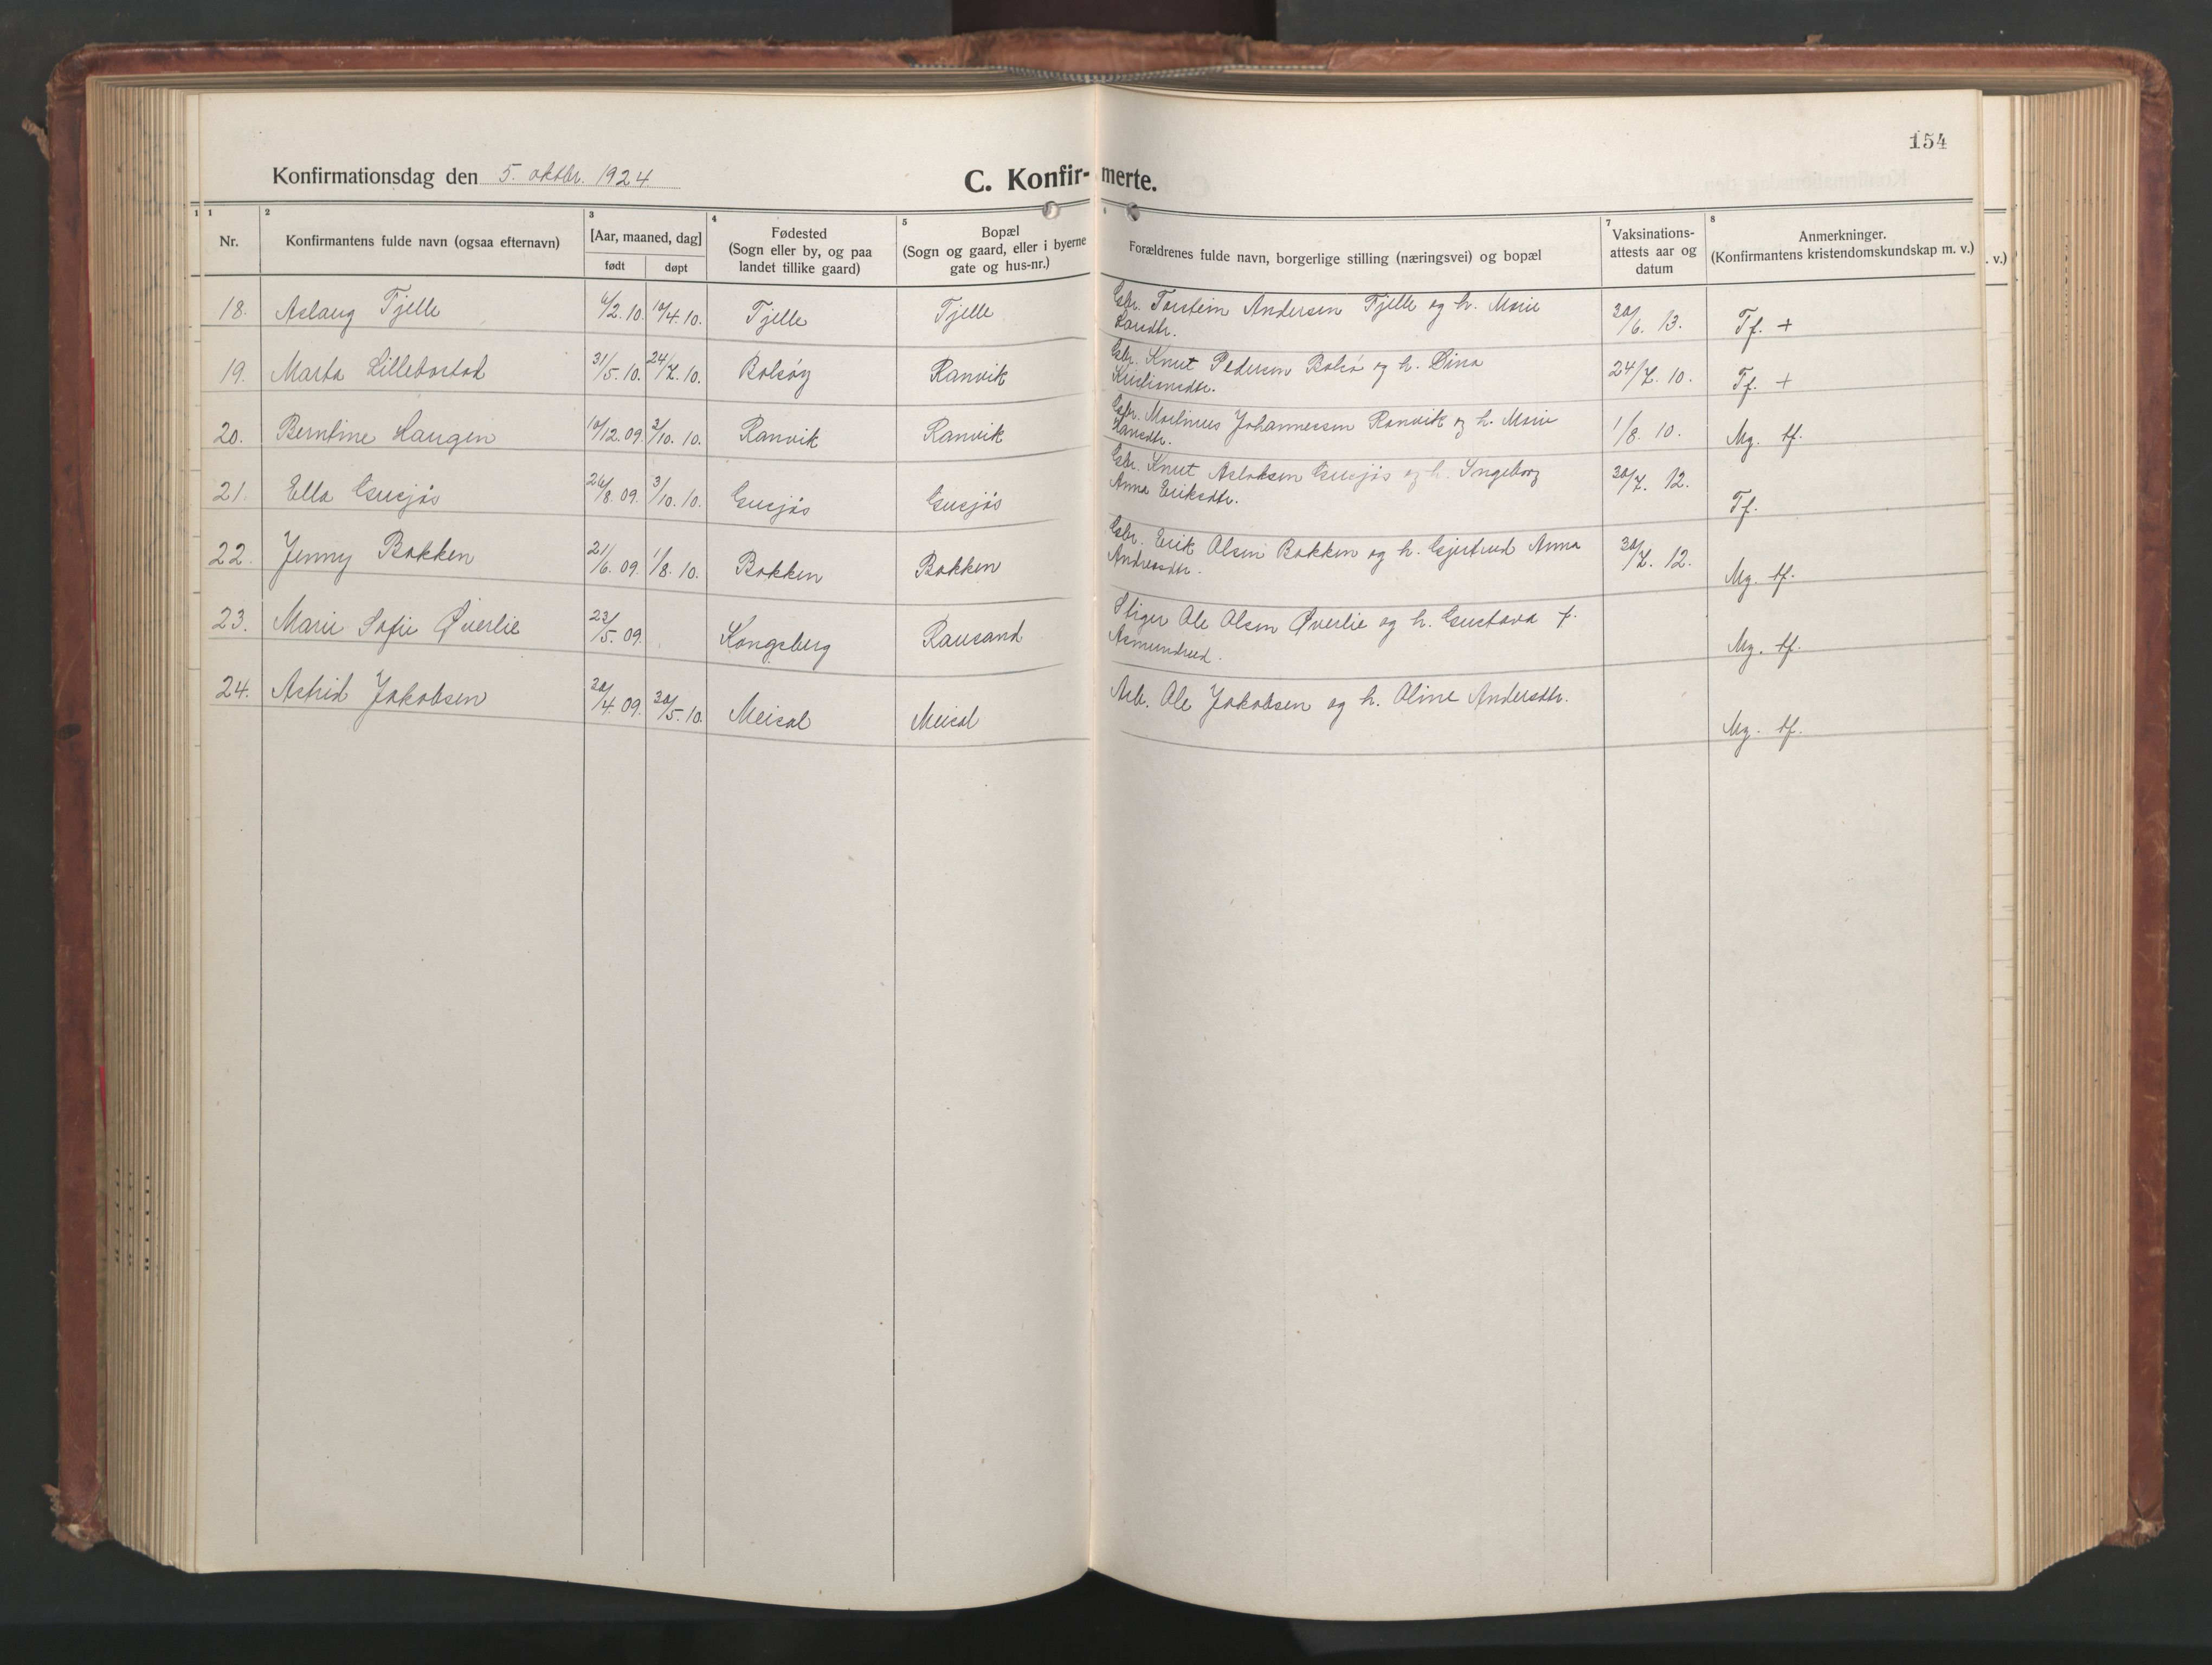 154
Konfirmationsdag den 5. oktbr. 1924
C. Konfir- merte.
1 1 2 3 4 5 6 7 8
Nr.
Konfirmantens fulde navn (ogsaa efternavn)
[Aar, maaned, dag]
født døpt
Fødested
(Sogn eller by, og paa
landet tillike gaard)
Bopæl
(Sogn og gaard, eller i byerne
gate og hus-nr.)
Forældrenes fulde navn, borgerlige stilling (næringsvei) og bopæl
Vaksinations-
attests aar og
datum
Anmerkninger.
(Konfirmantens kristendomskundskap m. v.)
. v.)
18. Aslaug Tjelle 6/2. 10. 10/4. 10. Tjelle Tjelle Gbr. Torstein Andersen Tjelle og h. Marie 30/6. 13. Tf. +
Larsdtr.
19. Marta Lillebostad 31/5. 10. 24/7. 10. Bolsøy Ranvik Gbr. Knut Pedersen Bolsø og h. Dina 24/7. 10. Tf. +
Kristiansdtr.
20. Berntine Haugen 10/12. 09. 2/10. 10. Ranvik Ranvik Gbr. Martinus Johannessen Ranvik og h. Marie 1/8. 10. Mg. tf.
Hansdtr.
21. Ella Gusjås 26/8. 09. 3/10. 10. Gusjås Gusjås Gbr. Knut Aslaksen Gusjås og h. Ingeborg 30/7. 12. Tf.
Anna Eriksdtr.
22. Jenny Bakken 21/6. 09. 1/8. 10. Bakken Bakken Gbr. Erik Olsen Bakken og h. Gjertrud Anna 30/7. 12. Mg. tf.
Andreasdtr.
23. Marie Sofie Øverlie 23/5. 09. Kongsberg Rausand Stiger Ole Olsen Øverlie og h. Gustava f. Mg. tf.
Asmundrud.
24. Astrid Jakobsen 20/4. 09. 30/5. 10. Meisal Meisal Arb. Ole Jakobsen og h. Oline Andersdtr. Mg. tf.